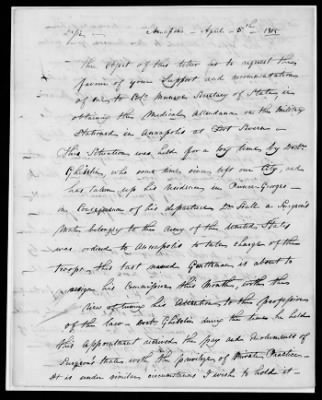 Annapolis - April - 5th 1815
The object of this letter is to request the
favour of your Support and recommendation
of me to Mr Munroe Secretary of State, in
obtaining the Medical Attendance on the Military
Stationed in Annapolis at Fort Severn -
This Situation was held for a long time by Doctr
Ghiselin, who some time since left our City, and
has taken up his residence in Prince Georges -
in Consequence of his departure Dr Hall a Surgeon's
Mate belonging to the army of the United States
was ordered to Annapolis to take charge of the
troops, this last named Gentleman is about to
resign his Commission this Month, with the
view of turning his attention to the profession
of the law - Doctr Ghiselin during the time he held
this appointment received the pay and emoluments of
Surgeon's Mate with the privilege of Private Practice -
It is under similar circumstances I wish to hold it -